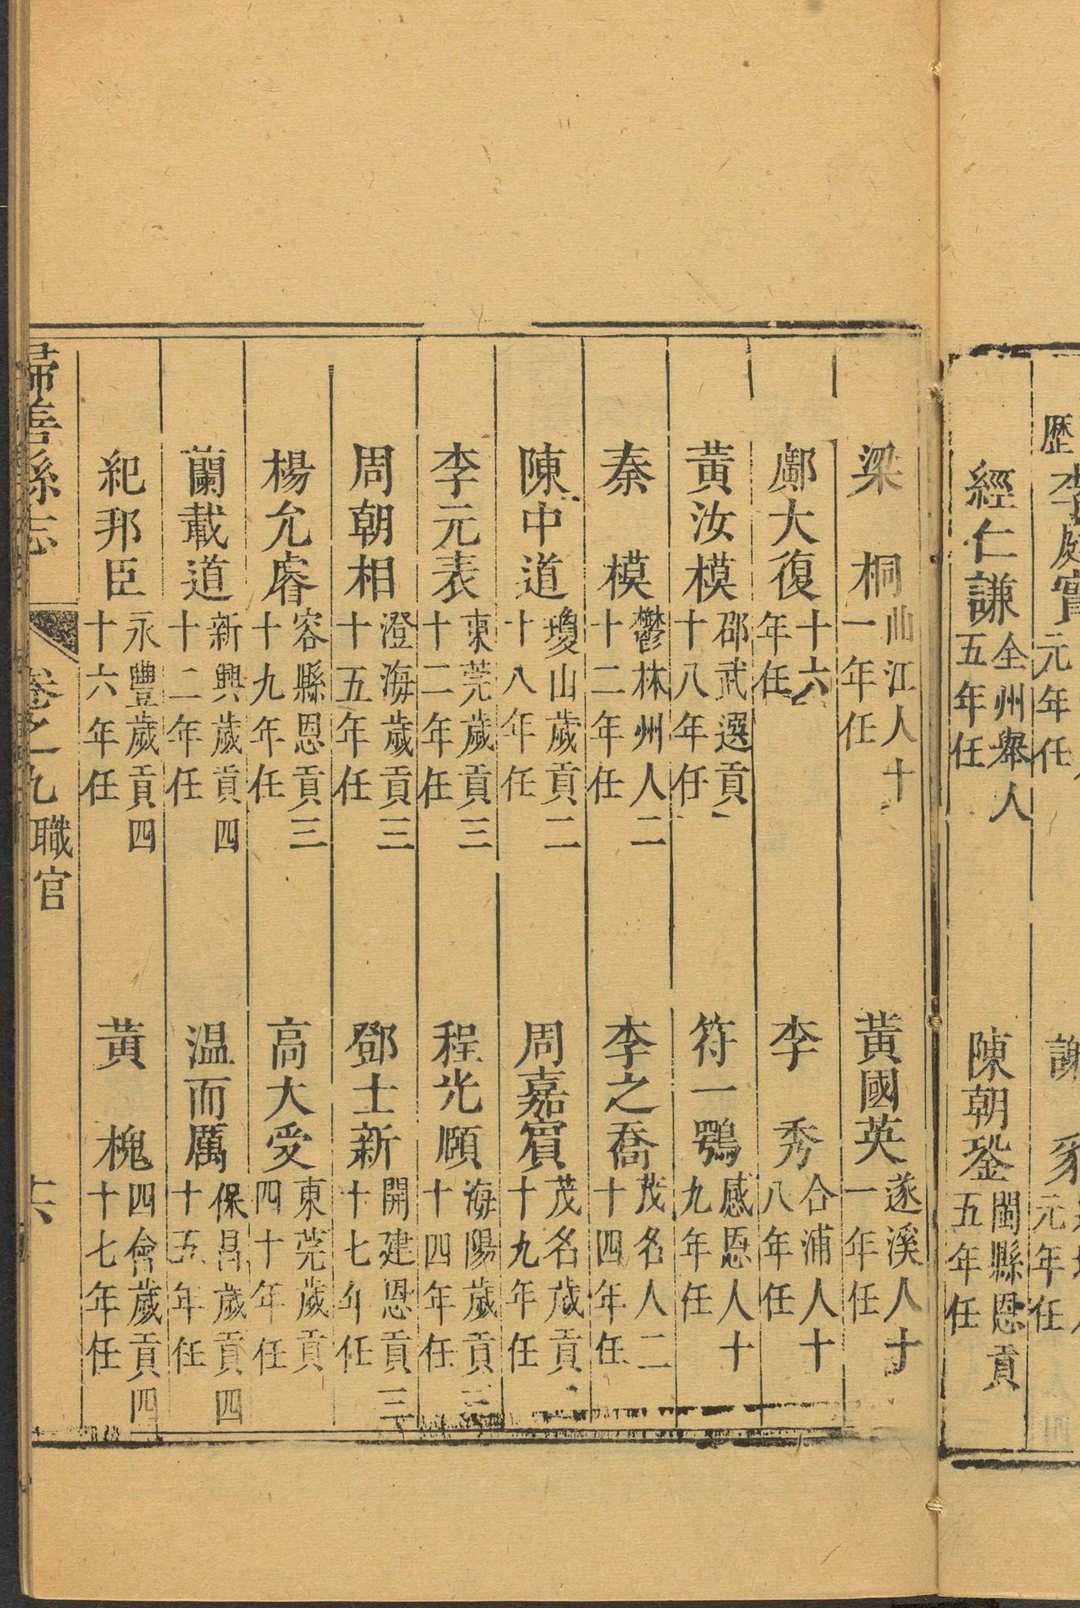 李庭實元年任
謝
經仁謙全州舉人五年任
陳朝銮閩縣恩貢五年任
梁桐曲江人十一年任
黃國英遂溪人十一年任
鄺大復十六年任
李秀合浦人十八年任
黃汝模邵武選貢十八年任
符一鶚感恩人十九年任
秦模鬱林州人二十二年任
李之喬茂名人二十四年任
陳中道瓊山歲貢二十八年任
周嘉賓茂名歲貢二十九年任
李元表東莞歲貢三十二年任
程光願海陽歲貢三十四年任
周朝相澄海歲貢三十五年任
鄧士新開建恩貢三十七年任
楊允睿容縣恩貢三十九年任
高大受東莞歲貢四十年任
蘭載道新興歲貢四十二年任
温而厲保昌歲貢四十五年任
紀邦臣永豐歲貢四十六年任
黃槐四會歲貢四十七年任
歸善縣志 卷之九 職官 十六